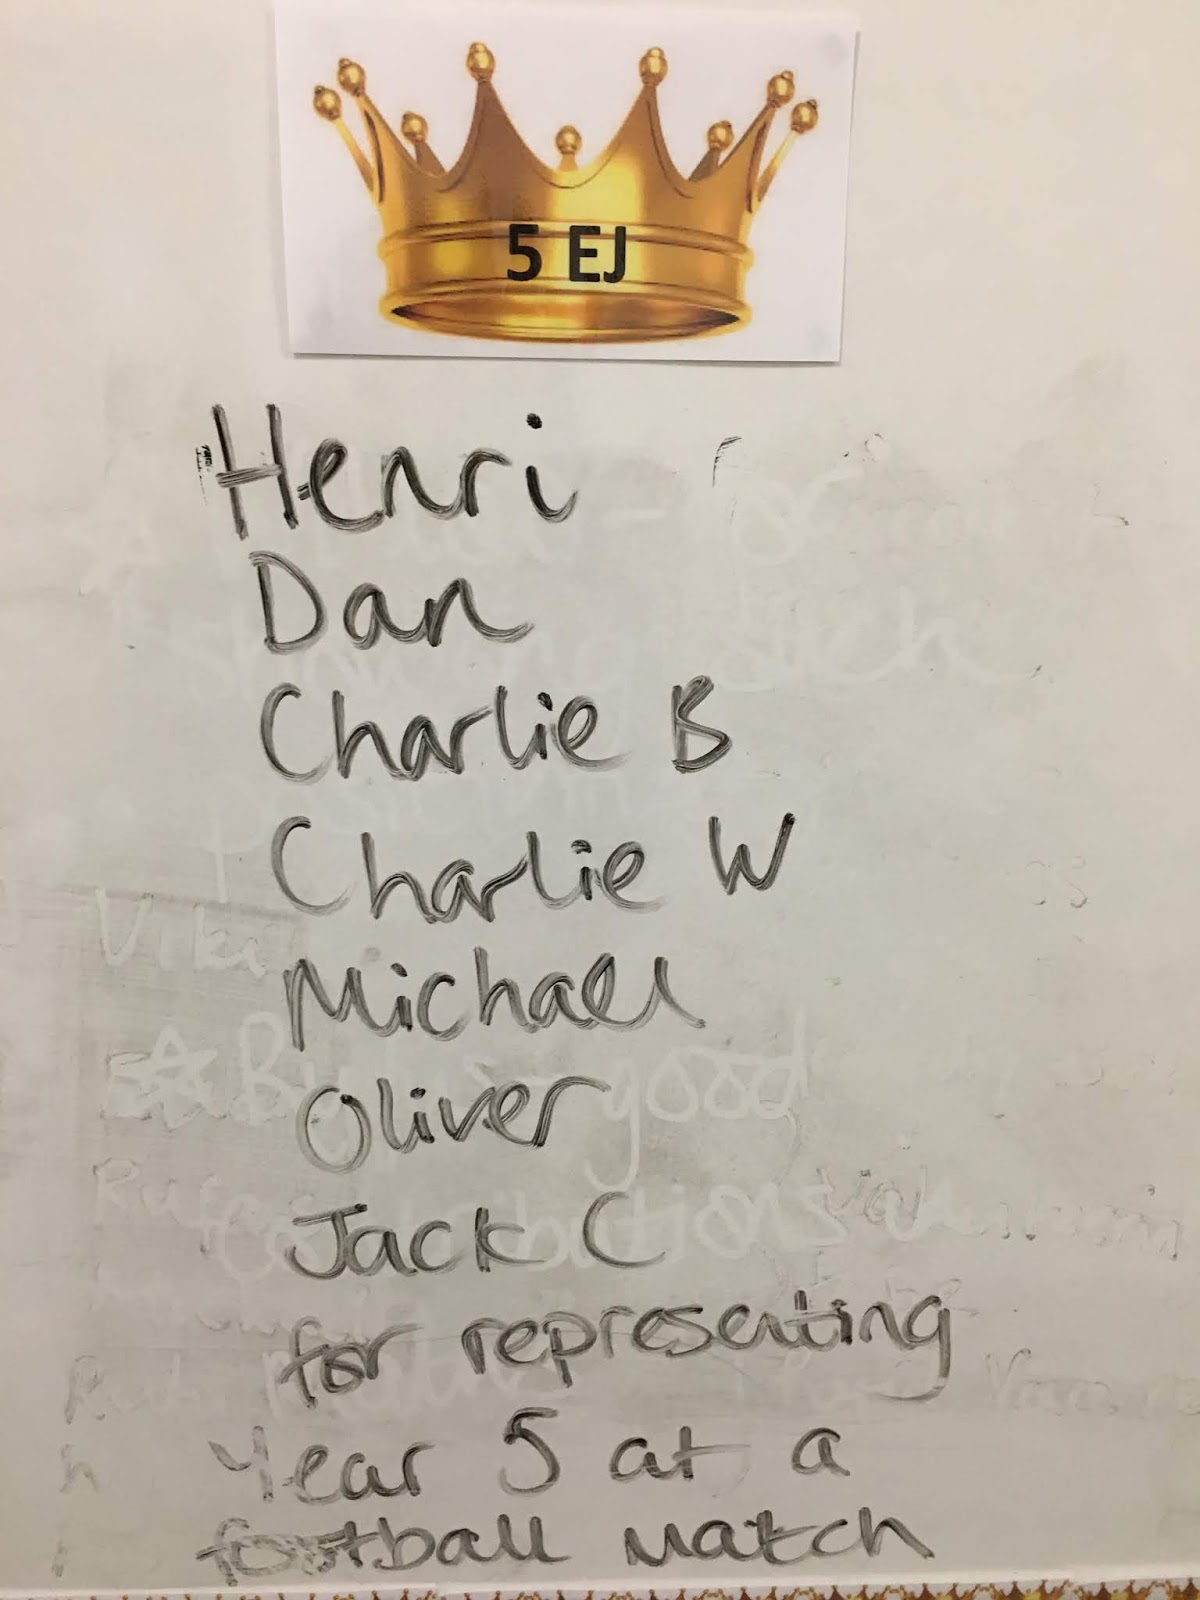 5 EJ
Henri
Dan
Charlie B
Charlie W
Michael
Oliver
Jack C
for representing
Year 5 at a
football match